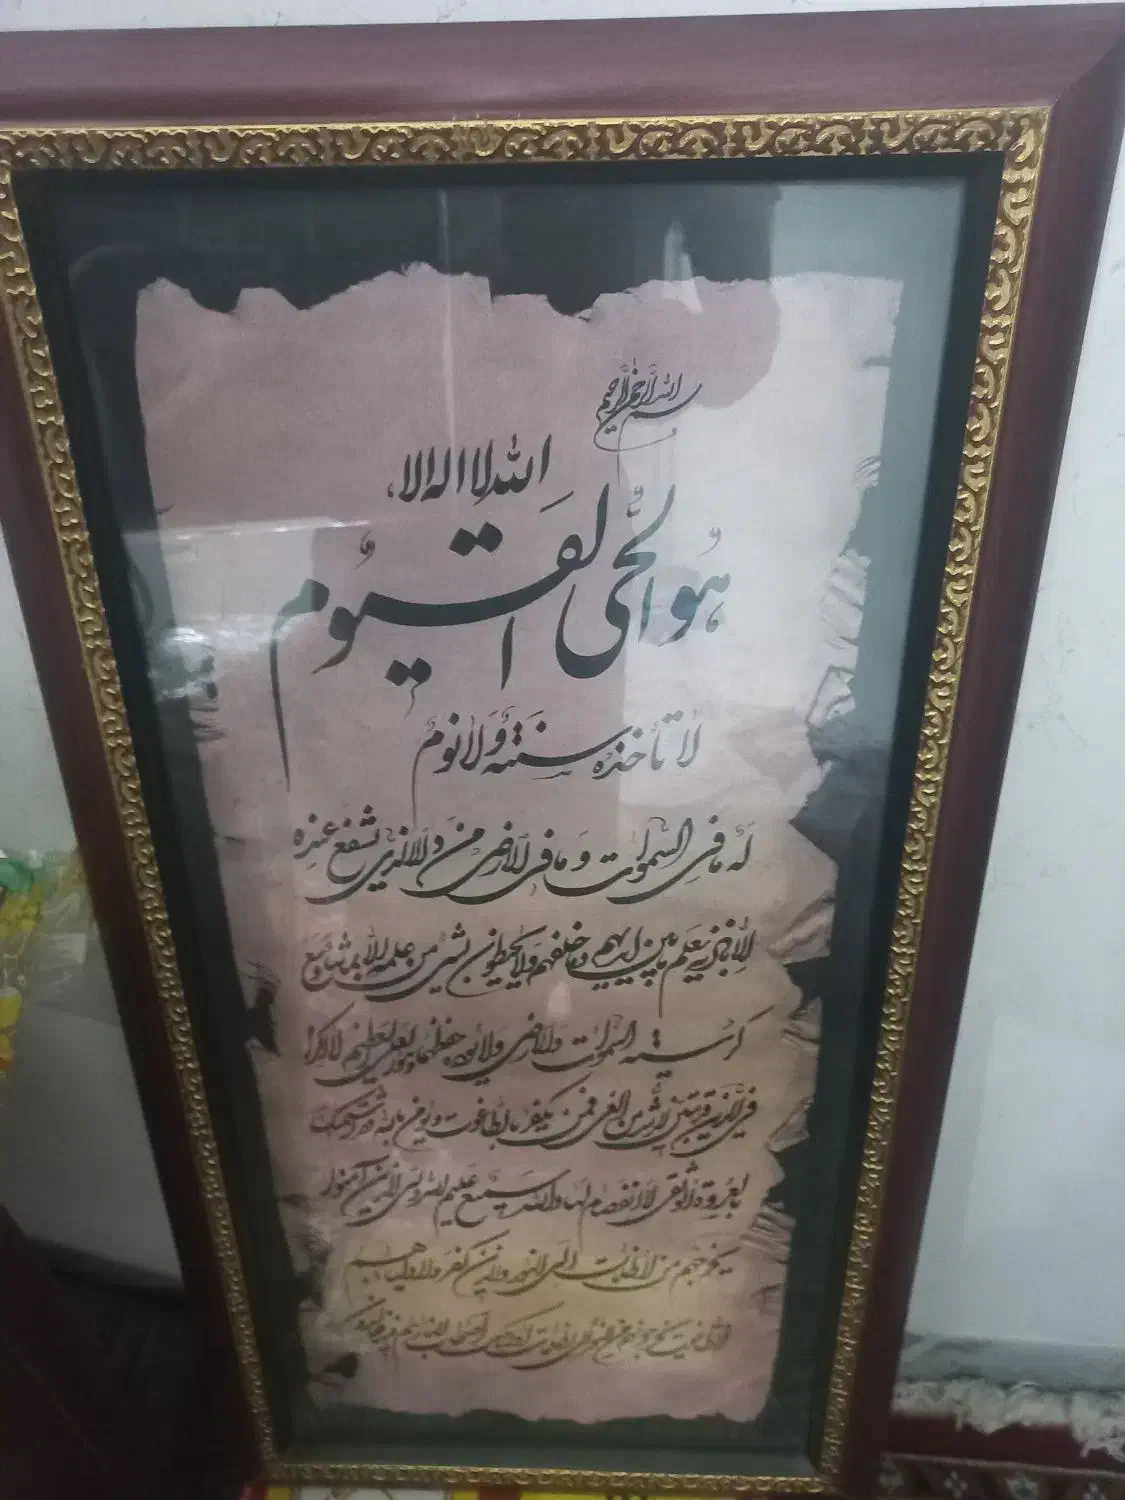 بسم الله الرحمن الرحیم
الله لا اله الا
هُو الحَی القَیُّوم
لا تأخذه سنة ولا نوم
لَه ما فی السموات و ما فی الارض من ذا لذی یشفع عنده
الا باذنه یعلم ما بین ایدیهم و ما خلفهم ولا یحیطون بشی من علمه الا بما شا وسع
کرسیه السموات والارض ولا یوده حفظهما و هو العلی العظیم لا اکراه
فی الدین قد تبین الرشد من الغی فمن یکفر بالطاغوت و یومن بالله فقد استمسک
بالعروة الوثقی لا انفصام لها والله سمیع علیم الله ولی الذین آمنوا
یخرجهم من الظلمات الی النور والذین کفروا اولیاهم
الطاغوت یخرجونهم من النور الی الظلمات اولئک اصحاب النار هم فیها خالدون